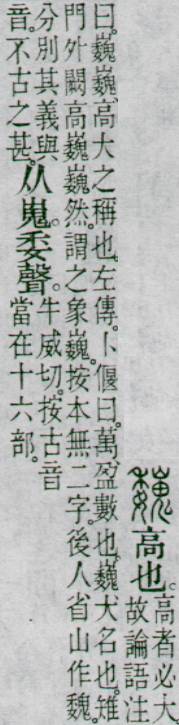 巍高也。高者必大
故論語注
曰。巍巍、高大之稱也。左傳。卜偃曰。萬、盈數也。巍、大名也。雉
門外闕高巍巍然。謂之象巍。按本無二字。後人省山作魏。
分別其義與
音。不古之甚。
从嵬。委聲。
牛威切。按古音
當在十六部。